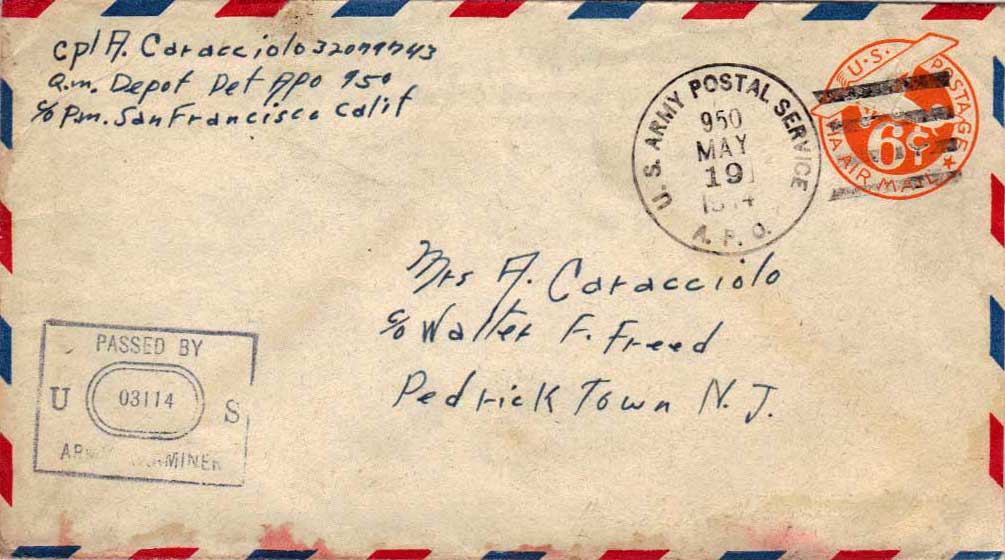 Cpl A. Caracciolo 32079743
Q.M. Depot Det APO 950
c/o P.M. San Francisco Calif
U.S. ARMY POSTAL SERVICE
950
MAY
19
1944
A.P.O.
U.S. POSTAGE
6¢
VIA AIR MAIL
Mrs A. Caracciolo
c/o Walter F. Freed
Pedrick Town N.J.
PASSED BY
U 03114 S
ARMY EXAMINER